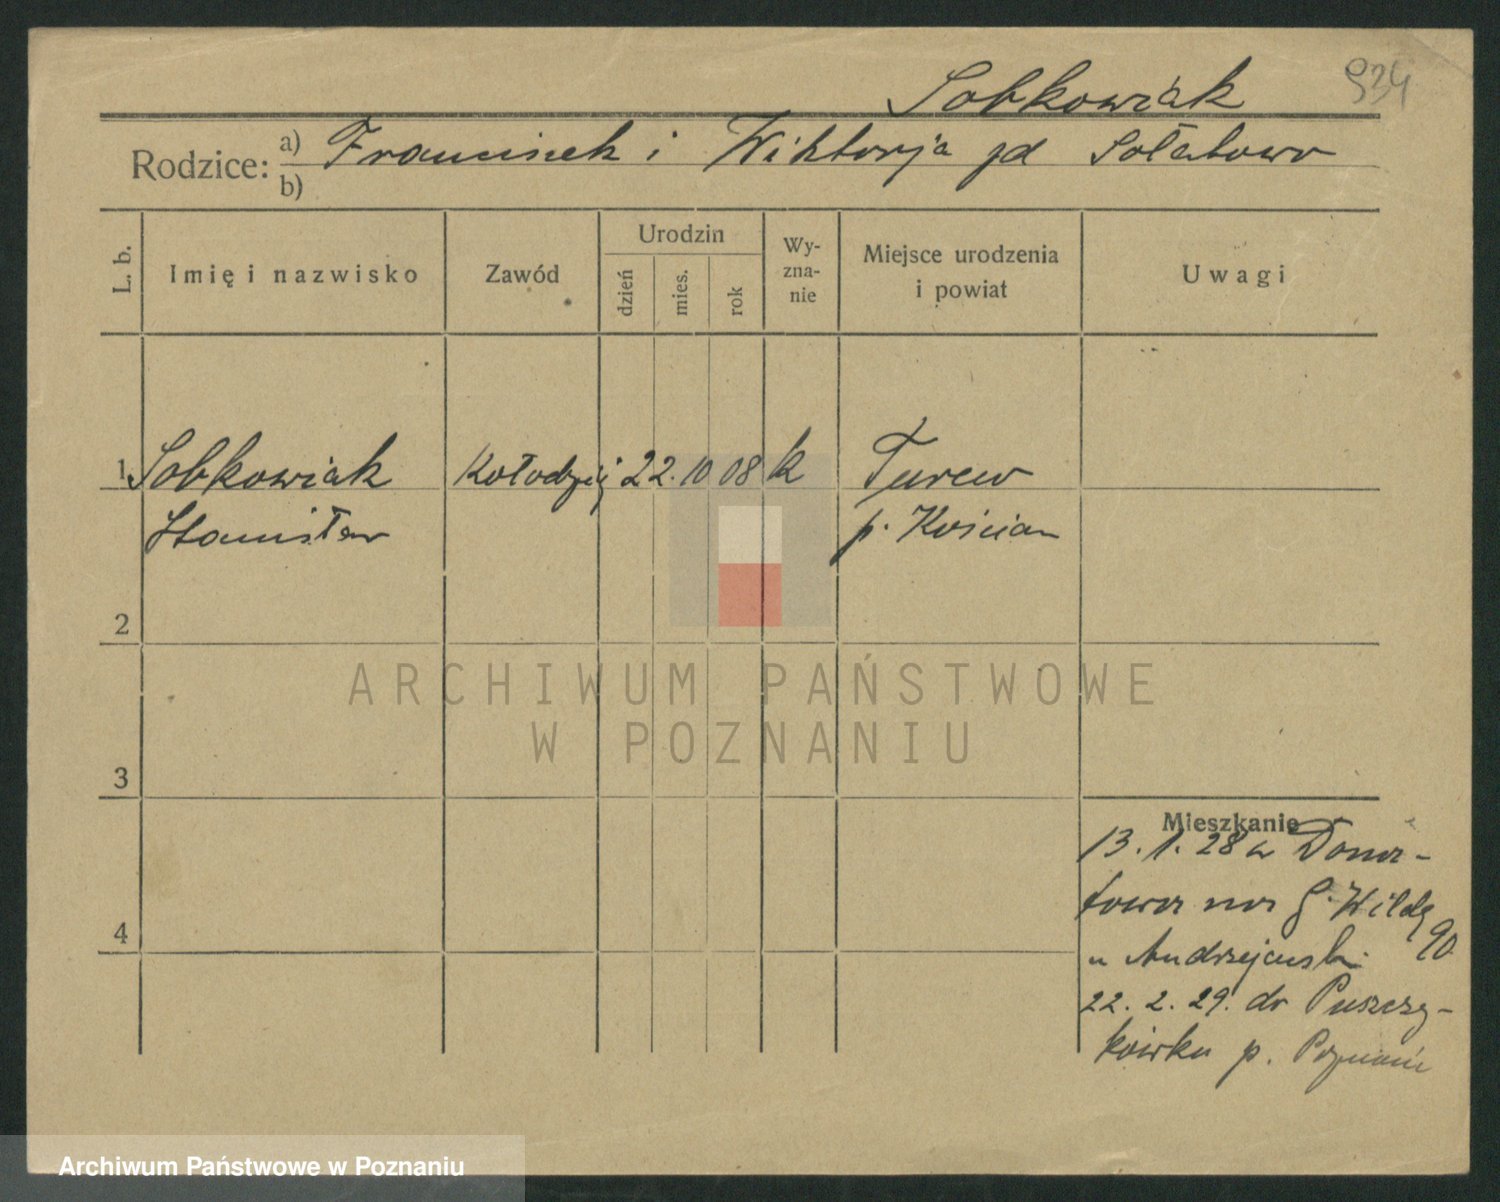 Sobkowiak 934
Rodzice: a) Franciszek i Wiktorja zd
b)
L. b.
Imię i nazwisko
Zawód
Urodzin
dzień
mies.
rok
Wy-
zna-
nie
Miejsce urodzenia
i powiat
Uwagi
1 Sobkowiak Kołodziej 22. 10 08 k Turew
Stanisław p. Kościan
2
3
4
Mieszkanie
13. 1. 28 z Dona-
towa na G. Wildę 90
u Andrzejewski
22. 2. 29. do Puszczy-
kówka p. Poznań
ARCHIWUM PAŃSTWOWE
W POZNANIU
Archiwum Państwowe w Poznaniu